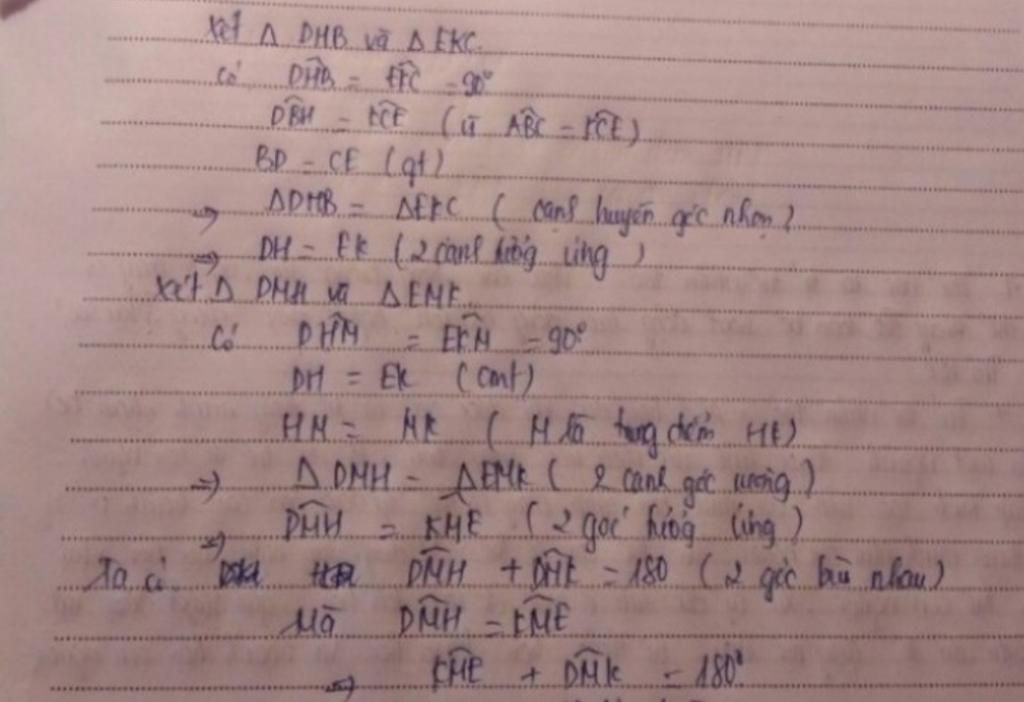 Xét Δ DHB và Δ EKC.
Có DHB = EKC = 90°
DBH = KCE (vì ABC = KCE)
BD = CE (gt)
=> ΔDHB = ΔEKC ( cạnh huyền góc nhọn)
=> DH = EK ( 2 cạnh tương ứng )
Xét Δ DMH và ΔEMK
Có DHM = EKM = 90°
DH = EK (cmt)
HM = MK ( M là trung điểm HK)
=> Δ DMH = ΔEMK ( 2 cạnh góc vuông )
=> DMH = KME ( 2 góc tương ứng )
Ta có DMH + DMK = 180 ( 2 góc bù nhau)
Mà DMH = KME
=> KME + DMK = 180°